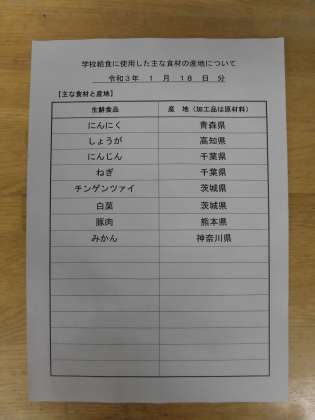 学校給食に使用した主な食材の産地について
令和3年 1 月 18 日 分
【主な食材と産地】
生鮮食品 産 地（加工品は原材料）
にんにく 青森県
しょうが 高知県
にんじん 千葉県
ねぎ 千葉県
チンゲンツァイ 茨城県
白菜 茨城県
豚肉 熊本県
みかん 神奈川県